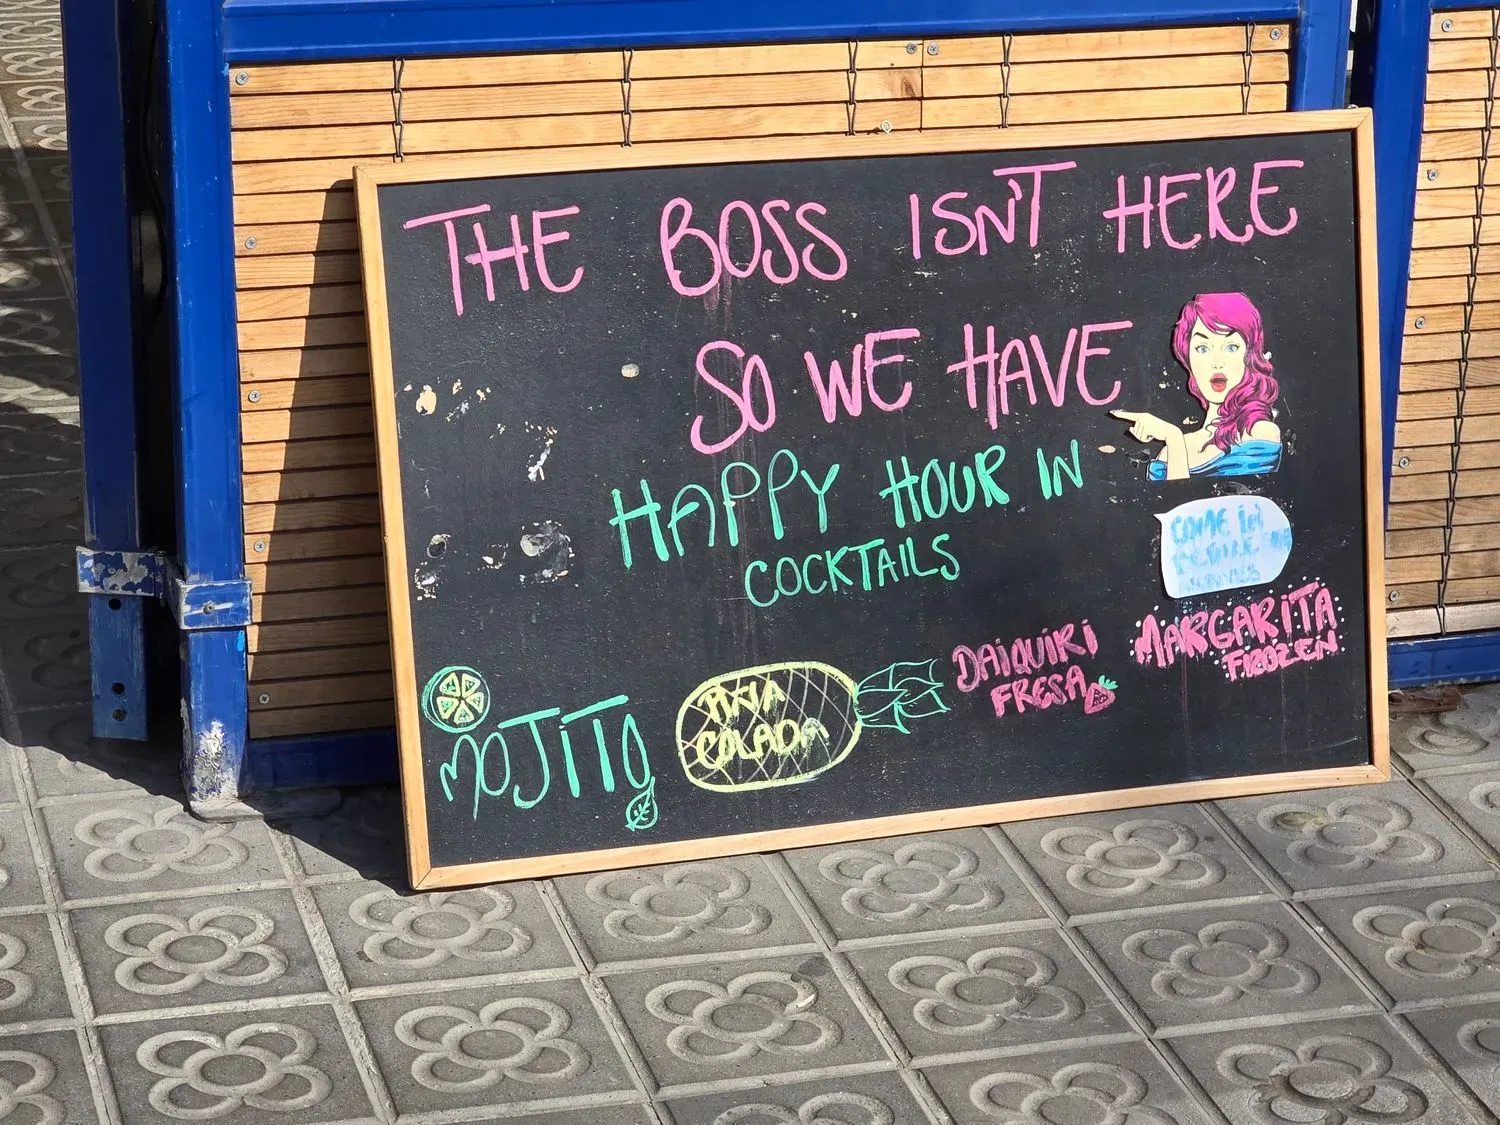 THE BOSS ISN'T HERE
SO WE HAVE
HAPPY HOUR IN
COCKTAILS
COME IN
MOJITO
PIÑA
COLADA
DAIQUIRI
FRESA
MARGARITA
FROZEN